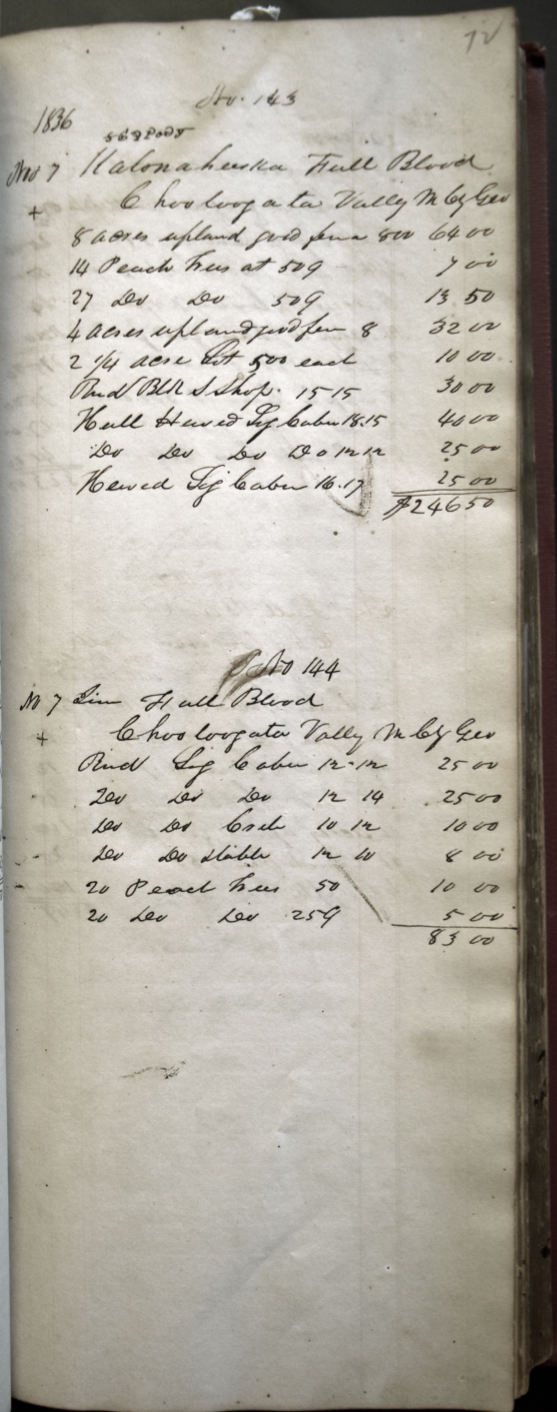 72
No. 143
1836
No 7 Kalonaheeska Full Blood
+ Chooloogata Vally M Cty Geo
8 acres upland good fenc 800 64 00
14 Peach Trees at 50¢ 7 00
27 Do Do 50¢ 13 50
4 acres upland good fen 8 32 00
2 1/4 acre Lot 500 each 10 00
Rnd Blk S Shop. 15 15 30 00
Hull Hewed Log Cabn 18.15 40 00
Do Do Do Do 12 12 25 00
Hewed Log Cabn 16.17 25 00
$246 50
No 144
No 7 Jim Full Blood
+ Choologata Vally M Cty Geo
Rnd Log Cabn 12-12 25 00
Do Do Do 12 14 25 00
Do Do Crib 10 12 10 00
Do Do Stable 12 10 8 00
20 Peach Trees 50 10 00
20 Do Do 25¢ 5 00
83 00